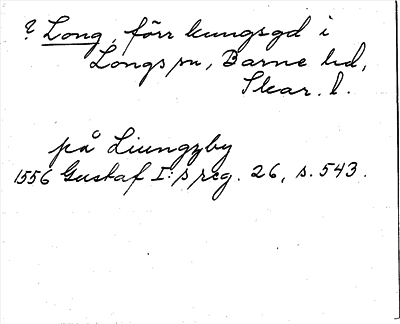 ? Long, förr kungsgd i
Longs sn, Barne hd,
Skar. l.
på Liungzby
1556 Gustaf I:s reg. 26, s. 543.